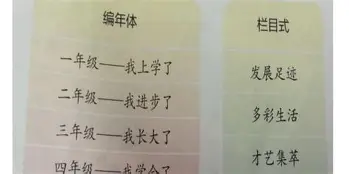 编年体
一年级——我上学了
二年级——我进步了
三年级——我长大了
四年级——我学会了
栏目式
发展足迹
多彩生活
才艺集萃